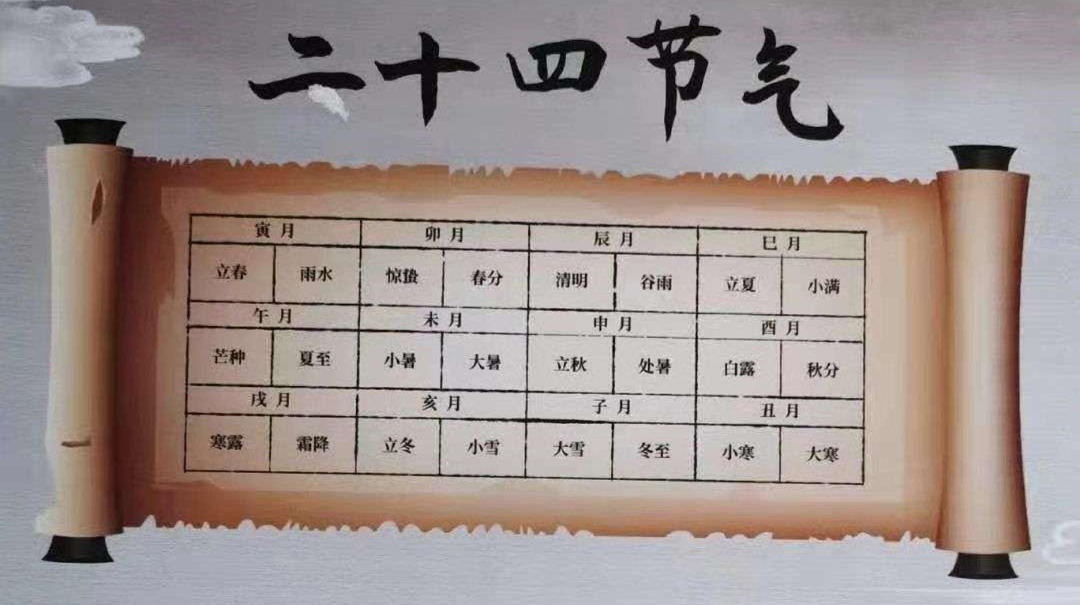 二十四节气
寅月 卯月 辰月 巳月
立春 雨水 惊蛰 春分 清明 谷雨 立夏 小满
午月 未月 申月 酉月
芒种 夏至 小暑 大暑 立秋 处暑 白露 秋分
戌月 亥月 子月 丑月
寒露 霜降 立冬 小雪 大雪 冬至 小寒 大寒